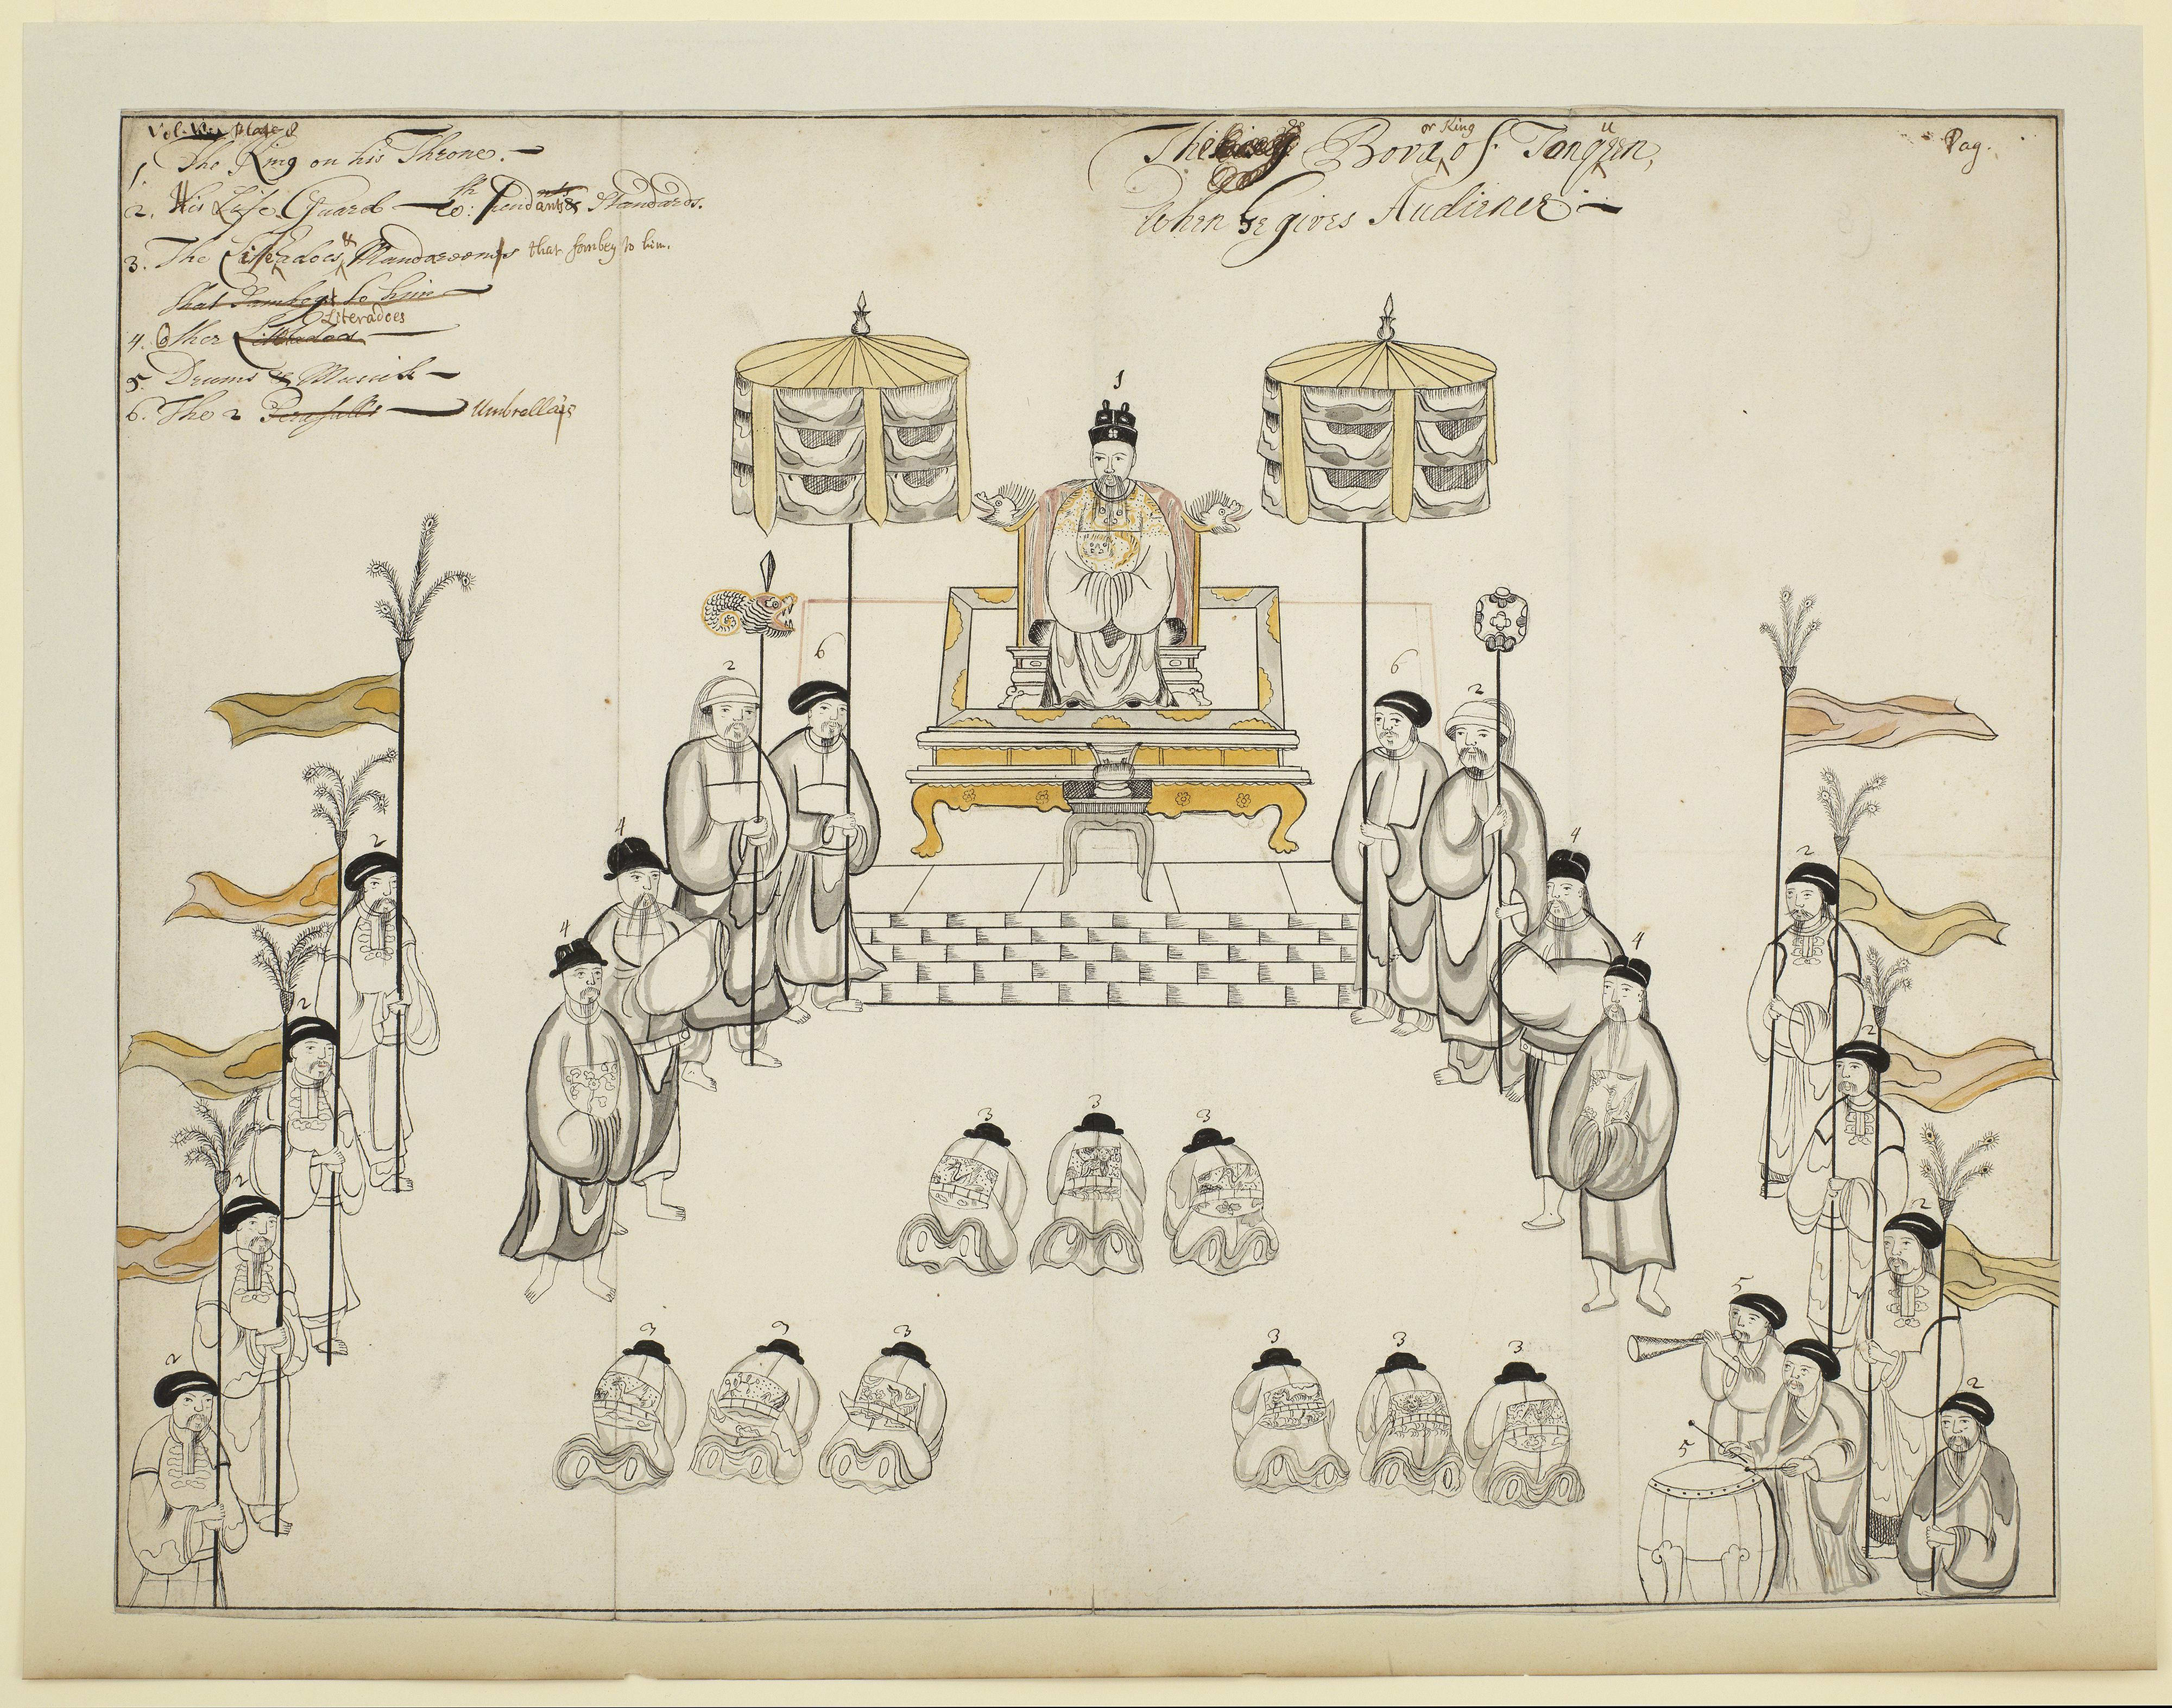 Vol. Plate 8
1. The King on his Throne. —
2. His Life Guard — Pendants & Standards.
3. The Literadoes & Mandareens that sombey to him.
that Sombey to him —
4. Other Literadoes —
5. Drums & Musick —
6. The 2 — Umbrella's
The Bova or King of Tonqueen,
When he gives Audience —
Pag.
1
2
6
6
2
4
4
4
4
2
2
2
2
2
2
2
2
3
3
3
3
3
3
3
3
3
5
5